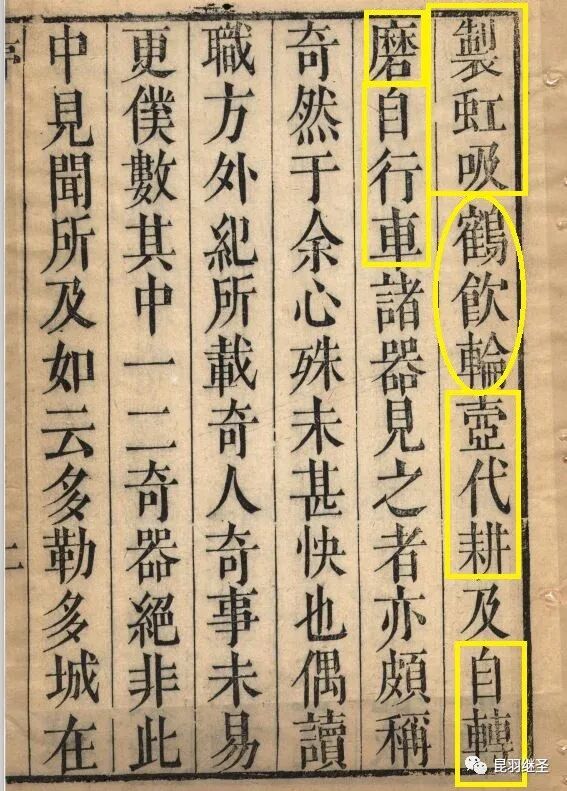 製虹吸鶴飲輪壺代耕及自轉
磨自行車諸器見之者亦頗稱
奇然于余心殊未甚快也偶讀
職方外紀所載奇人奇事未易
更僕數其中一二奇器絕非此
中見聞所及如云多勒多城在
昆羽继圣